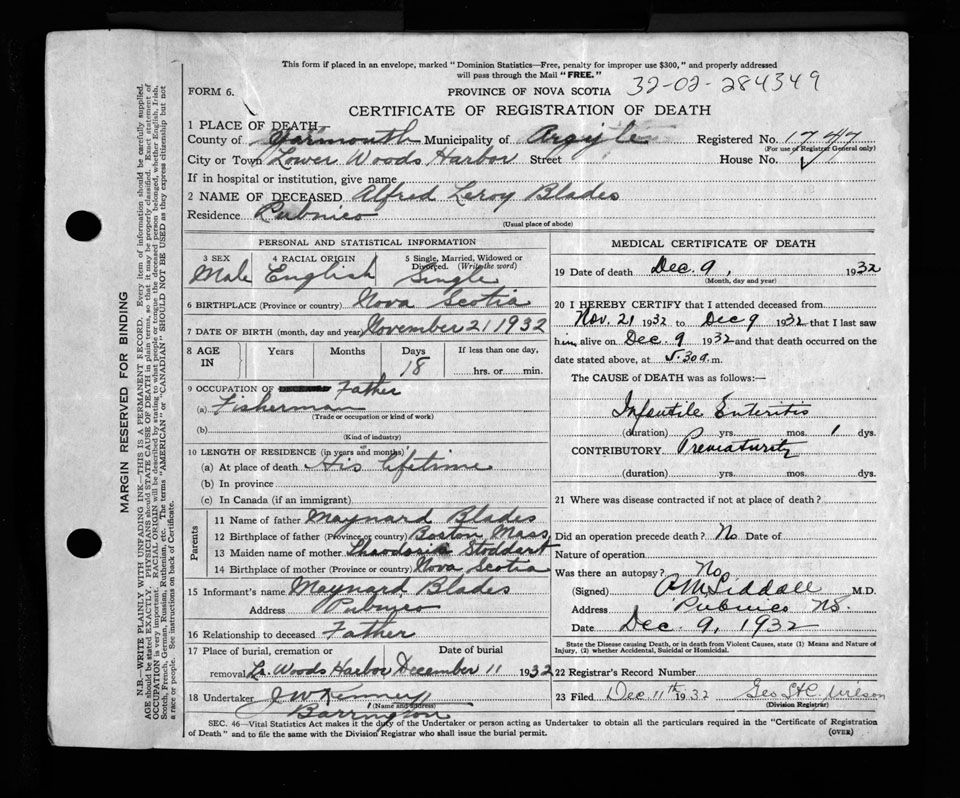 This form if placed in an envelope, marked "Dominion Statistics—Free, penalty for improper use $300," and properly addressed
will pass through the Mail "FREE."
32-02-284349
FORM 6.
PROVINCE OF NOVA SCOTIA
CERTIFICATE OF REGISTRATION OF DEATH
1 PLACE OF DEATH
County of Yarmouth Municipality of Argyle Registered No. 1747
(For use of Registrar General only)
City or Town Lower Woods Harbor Street House No.
If in hospital or institution, give name
2 NAME OF DECEASED Alfred Leroy Blades
Residence Pubnico
(Usual place of abode)
PERSONAL AND STATISTICAL INFORMATION
3 SEX 4 RACIAL ORIGIN 5 Single, Married, Widowed or Divorced. (Write the word)
Male English Single
6 BIRTHPLACE (Province or country) Nova Scotia
7 DATE OF BIRTH (month, day and year) November 21 1932
8 AGE IN Years Months Days If less than one day,
18 hrs. or min.
9 OCCUPATION OF Father
(a) Fisherman
(Trade or occupation or kind of work)
(b)
(Kind of industry)
10 LENGTH OF RESIDENCE (in years and months)
(a) At place of death His lifetime
(b) In province
(c) In Canada (if an immigrant)
Parents
11 Name of father Maynard Blades
12 Birthplace of father (Province or country) Boston Mass
13 Maiden name of mother Stoddart
14 Birthplace of mother (Province or country) Nova Scotia
15 Informant's name Maynard Blades
Address Pubnico
16 Relationship to deceased Father
17 Place of burial, cremation or removal Date of burial
Lr. Woods Harbor December 11 1932
18 Undertaker J W Kenney
(Name and address)
Barrington
MEDICAL CERTIFICATE OF DEATH
19 Date of death Dec. 9, 1932
(Month, day and year)
20 I HEREBY CERTIFY that I attended deceased from
Nov. 21 1932 to Dec 9 1932 that I last saw
him alive on Dec. 9 1932 and that death occurred on the
date stated above, at 5.30 a.m.
The CAUSE of DEATH was as follows:—
Infantile Enteritis
(duration) yrs. mos. 1 dys.
CONTRIBUTORY Prematurity
(duration) yrs. mos. dys.
21 Where was disease contracted if not at place of death?
Did an operation precede death? No Date of
Nature of operation
Was there an autopsy? No
(Signed) Siddall M.D.
Address Pubnico NS.
Date Dec. 9, 1932
State the Disease causing Death, or in death from Violent Causes, state (1) Means and Nature of
Injury, (2) whether Accidental, Suicidal or Homicidal.
22 Registrar's Record Number
23 Filed Dec 11th 1932 Geo Wilson
(Division Registrar)
SEC. 46—Vital Statistics Act makes it the duty of the Undertaker or person acting as Undertaker to obtain all the particulars required in the "Certificate of Registration
of Death" and to file the same with the Division Registrar who shall issue the burial permit.
(OVER)
MARGIN RESERVED FOR BINDING
N.B.—WRITE PLAINLY WITH UNFADING INK—THIS IS A PERMANENT RECORD. Every item of information should be carefully supplied.
AGE should be stated EXACTLY. PHYSICIANS should STATE CAUSE OF DEATH in plain terms, so that it may be properly classified. Exact statement of
OCCUPATION is very important. RACIAL ORIGIN will be described by stating to what people or tongue the deceased person belonged, whether English, Irish,
Scotch, French, German, Russian, Ruthenian, etc. The terms "AMERICAN" or "CANADIAN" SHOULD NOT BE USED as they express citizenship but not
a race or people. See instructions on back of Certificate.